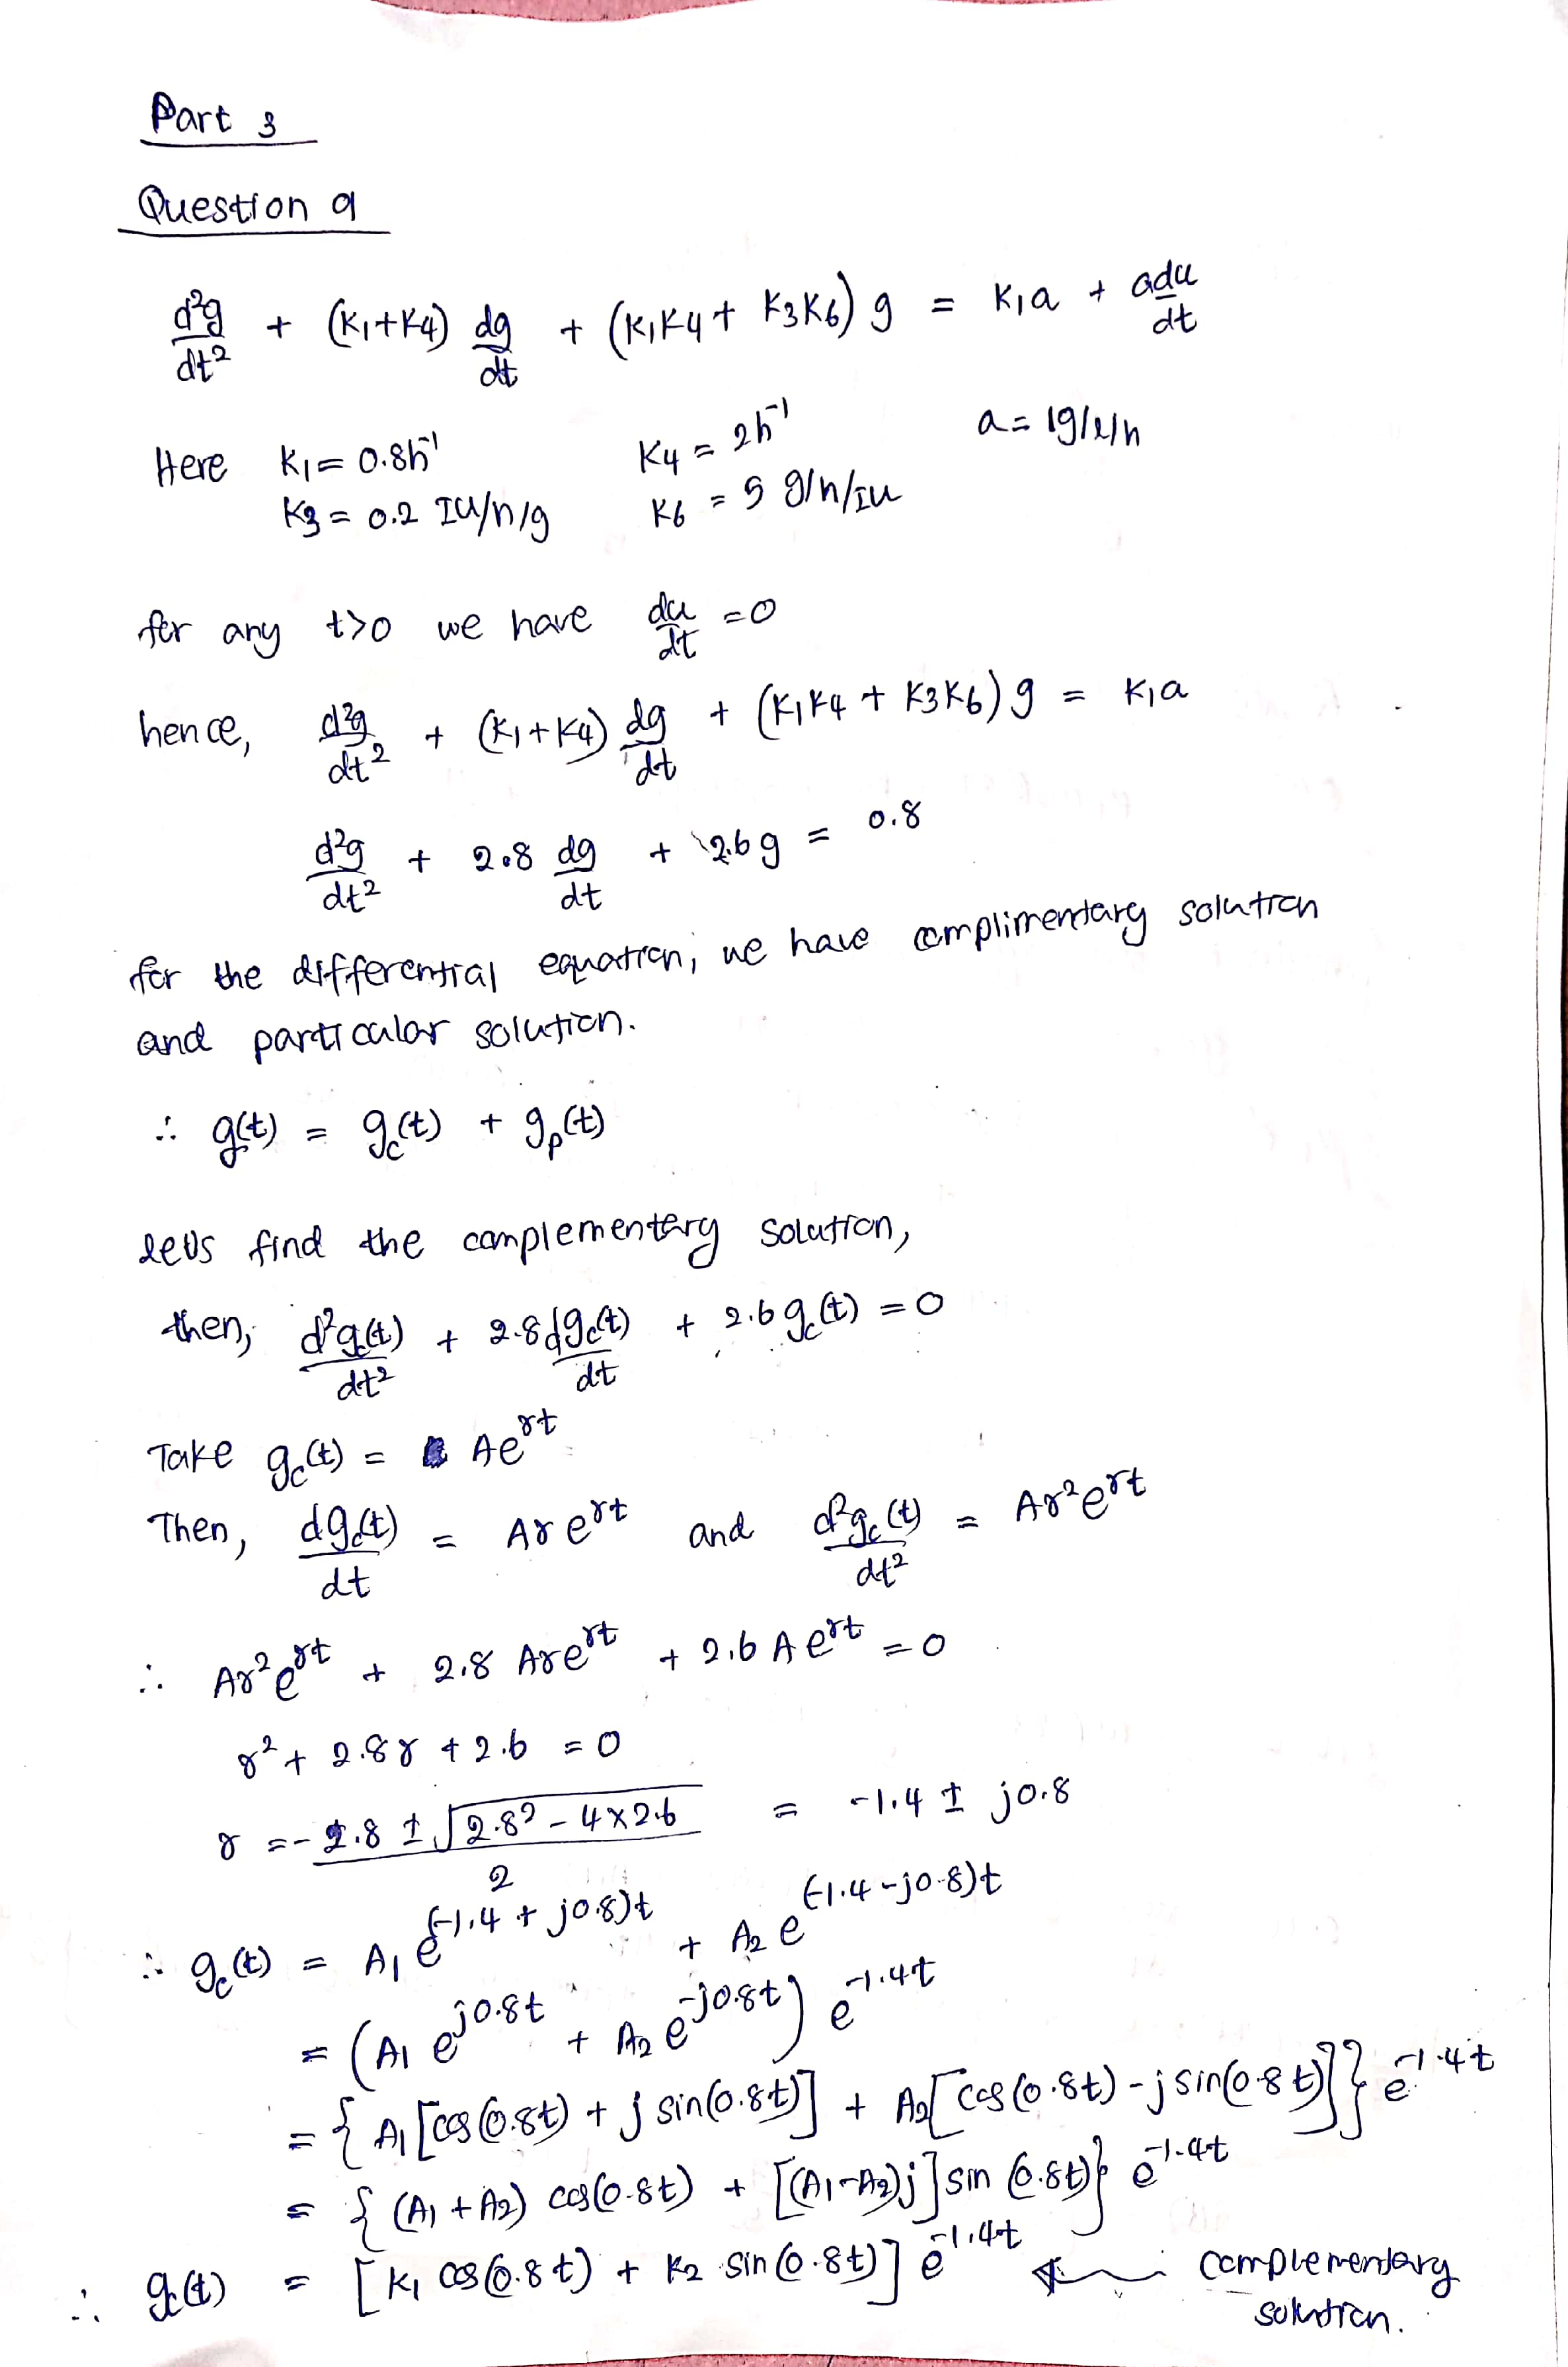 Part 3
Question 9
d²g/dt² + (K₁+K₄) dg/dt + (K₁K₄ + K₃K₆) g = K₁a + adu/dt
Here K₁ = 0.8h⁻¹ K₄ = 2h⁻¹ a = 1g/l/h
K₃ = 0.2 IU/h/g K₆ = 5 g/h/IU
for any t>0 we have du/dt = 0
hence, d²g/dt² + (K₁+K₄) dg/dt + (K₁K₄ + K₃K₆) g = K₁a
d²g/dt² + 2.8 dg/dt + 2.6 g = 0.8
for the differential equation, we have complimentary solution
and particular solution.
∴ g(t) = g_c(t) + g_p(t)
let's find the complementary solution,
then, d²g_c(t)/dt² + 2.8 dg_c(t)/dt + 2.6 g_c(t) = 0
Take g_c(t) = Ae^{rt}
Then, dg_c(t)/dt = Ar e^{rt} and d²g_c(t)/dt² = Ar² e^{rt}
∴ Ar² e^{rt} + 2.8 Ar e^{rt} + 2.6 A e^{rt} = 0
r² + 2.8r + 2.6 = 0
r = -2.8 ± √(2.8² - 4×2.6) / 2 = -1.4 ± j0.8
∴ g_c(t) = A₁ e^{(-1.4 + j0.8)t} + A₂ e^{(-1.4 - j0.8)t}
= (A₁ e^{j0.8t} + A₂ e^{-j0.8t}) e^{-1.4t}
= {A₁[cos(0.8t) + j sin(0.8t)] + A₂[cos(0.8t) - j sin(0.8t)]} e^{-1.4t}
= {(A₁ + A₂) cos(0.8t) + [(A₁-A₂)j] sin(0.8t)} e^{-1.4t}
∴ g_c(t) = [K₁ cos(0.8t) + K₂ sin(0.8t)] e^{-1.4t} ← complementary
solution.